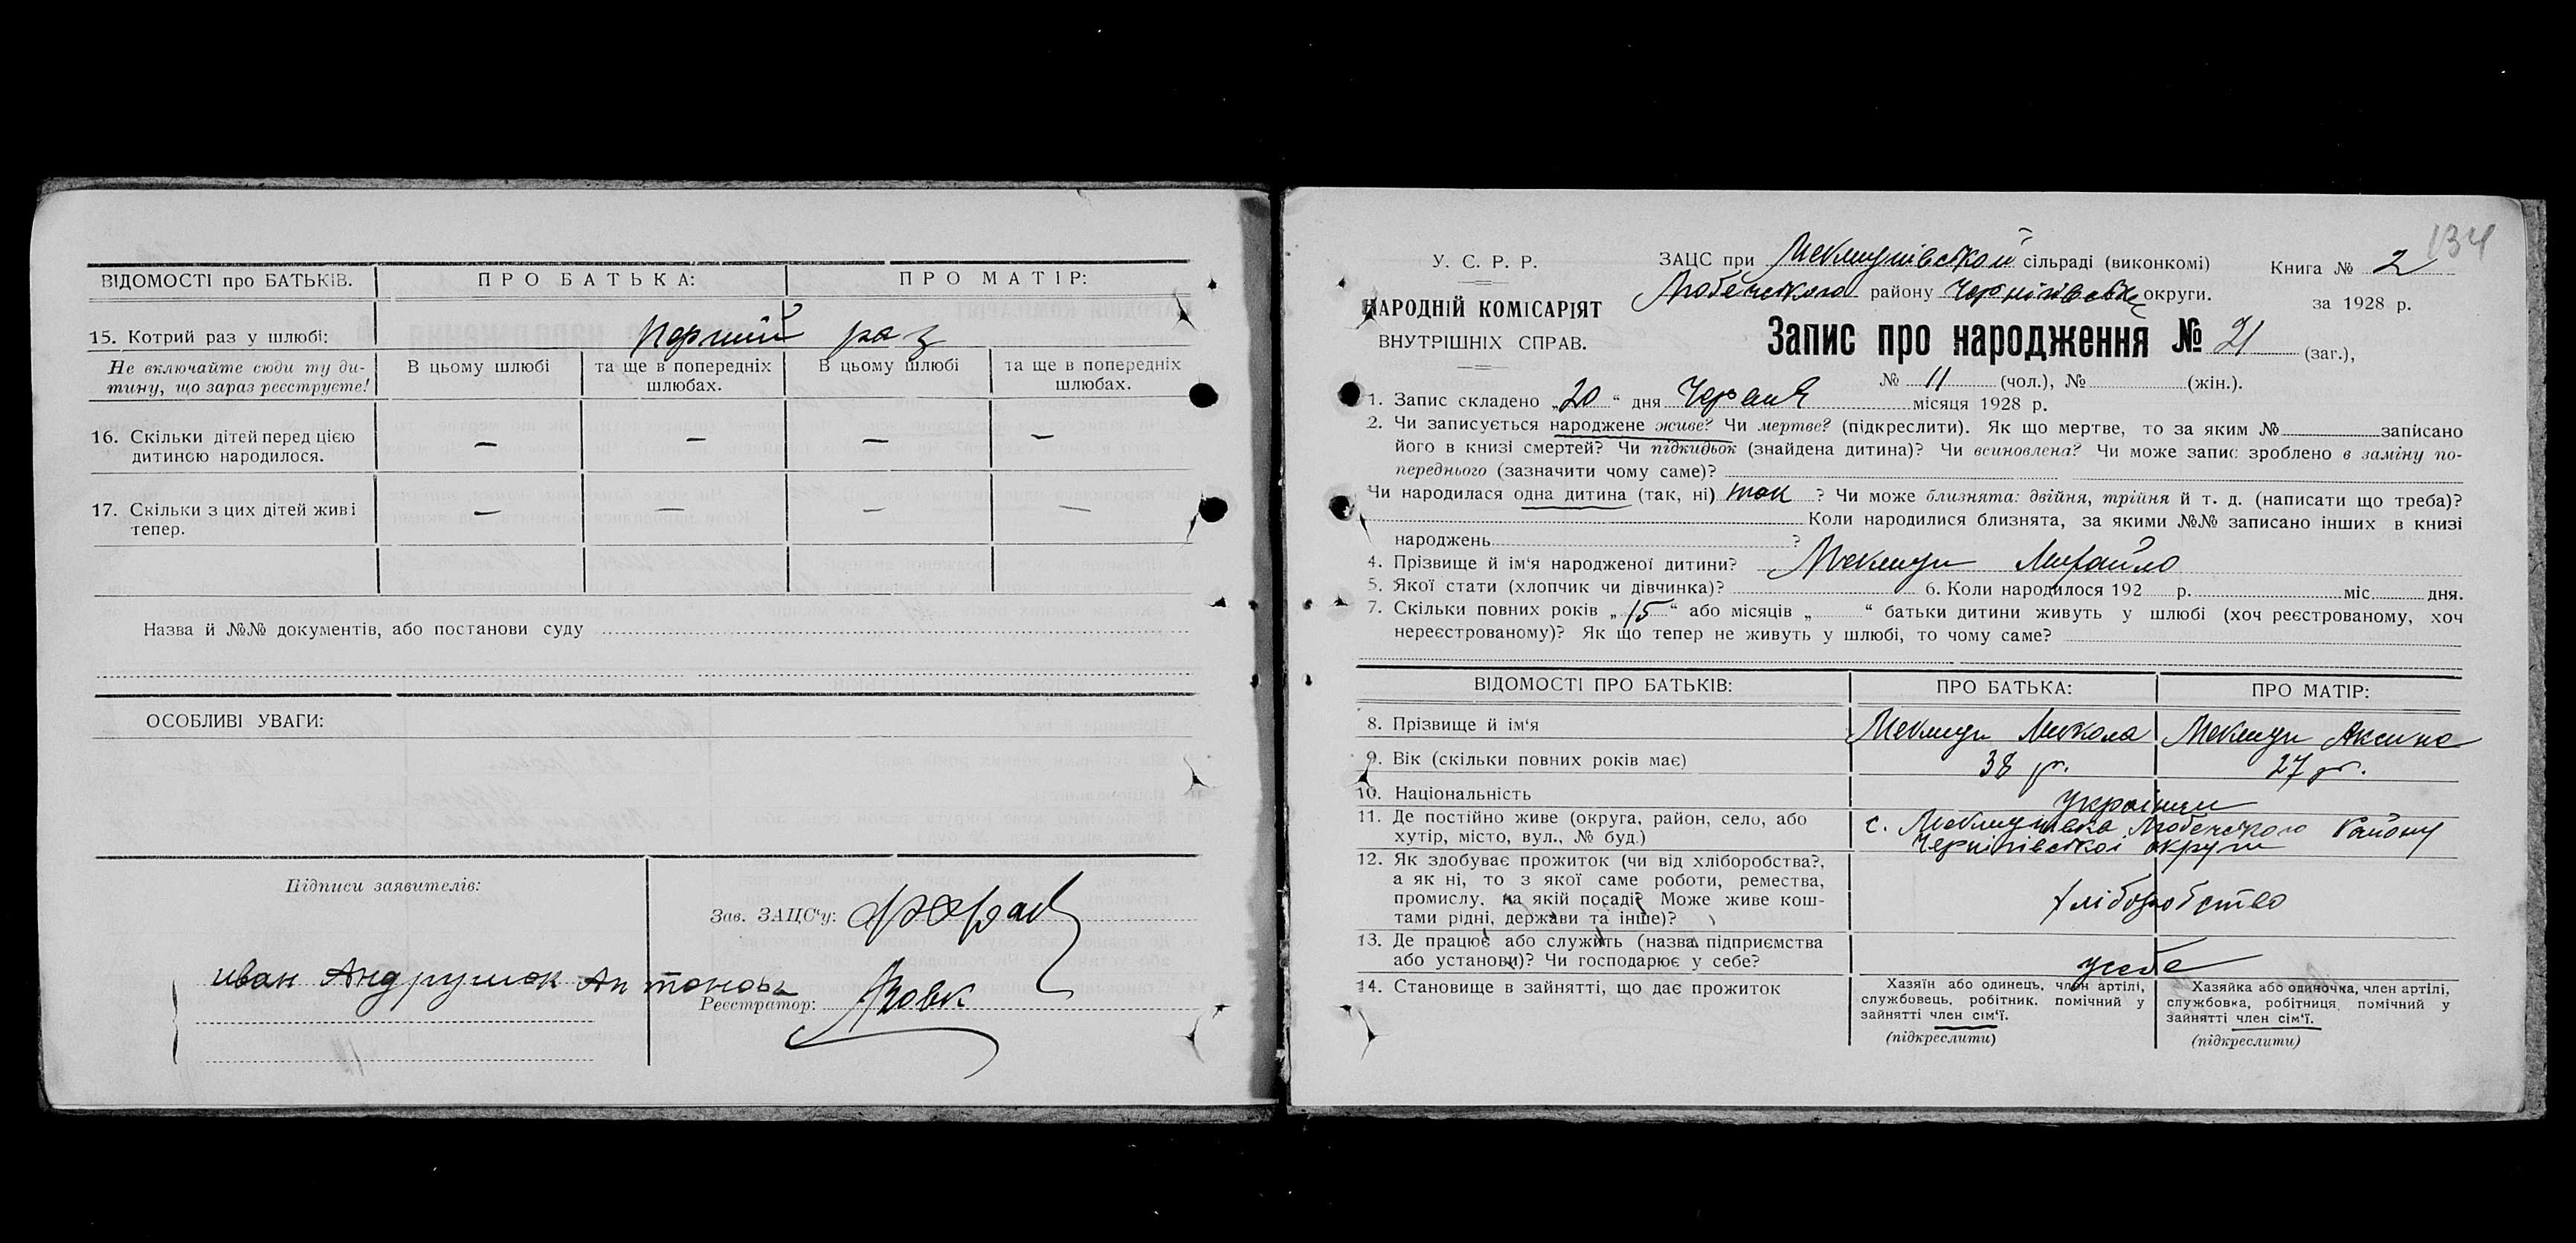 ВІДОМОСТІ про БАТЬКІВ. ПРО БАТЬКА: ПРО МАТІР:
15. Котрий раз у шлюбі: перший раз
Не включайте сюди ту ди-
тину, що зараз реєструєте!
В цьому шлюбі
та ще в попередніх
шлюбах.
В цьому шлюбі
та ще в попередніх
шлюбах.
16. Скільки дітей перед цією — — — —
дитиною народилося.
17. Скільки з цих дітей живі — — — —
тепер.
Назва й №№ документів, або постанови суду
ОСОБЛИВІ УВАГИ:
Підписи заявителів:
Зав. ЗАЦС'у:
иван Андрушок Антонова
Реєстратор: Яровк
134
У. С. Р. Р.
НАРОДНІЙ КОМІСАРІЯТ
ВНУТРІШНІХ СПРАВ.
ЗАЦС при сільраді (виконкомі)
Любецького району Чернігівськ округи.
Книга № 2
за 1928 р.
Запис про народження № 21 (заг.),
№ 11 (чол.), № (жін.).
1. Запис складено „20“ дня Червня місяця 1928 р.
2. Чи записується народжене живе? Чи мертве? (підкреслити). Як що мертве, то за яким № записано
його в книзі смертей? Чи підкидьок (знайдена дитина)? Чи всиновлена? Чи може запис зроблено в заміну по-
переднього (зазначити чому саме)?
Чи народилася одна дитина (так, ні) так ? Чи може близнята: двійня, трійня й т. д. (написати що треба)?
Коли народилися близнята, за якими №№ записано інших в книзі
народжень ?
4. Прізвище й ім'я народженої дитини? Михайло
5. Якої стати (хлопчик чи дівчинка)? 6. Коли народилося 192 р. міс. дня.
7. Скільки повних років „15“ або місяців „ “ батьки дитини живуть у шлюбі (хоч реєстрованому, хоч
нереєстрованому)? Як що тепер не живуть у шлюбі, то чому саме?
ВІДОМОСТІ ПРО БАТЬКІВ: ПРО БАТЬКА: ПРО МАТІР:
8. Прізвище й ім'я Микола Аксина
9. Вік (скільки повних років має) 38 р. 27 р.
10. Національність українці
11. Де постійно живе (округа, район, село, або
хутір, місто, вул., № буд.)
с. Любецького Району
Чернігівської округи
12. Як здобуває прожиток (чи від хліборобства?,
а як ні, то з якої саме роботи, ремества,
промислу, на якій посаді? Може живе кош-
тами рідні, держави та інше)?
хліборобство
13. Де працює або служить (назва підприємства
або установи)? Чи господарює у себе?
усебе
14. Становище в зайнятті, що дає прожиток
Хазяїн або одинець, член артілі,
службовець, робітник, помічний у
зайнятті член сім'ї.
(підкреслити)
Хазяйка або одиночка, член артілі,
службовка, робітниця, помічний у
зайнятті член сім'ї.
(підкреслити)